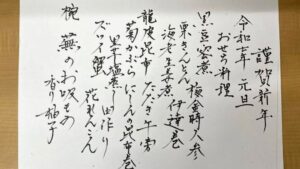 謹賀新年
令和五年 元旦
おせち料理
黒豆蜜煮 梅金時人参
栗きんとん 伊達巻
海老生姜煮
龍皮昆布 たたき牛蒡
菊かぶら にしんの昆布巻
黒千塩煮 田作り
ズワイ蟹 花れんこん
椀 蕪のお吸もの
香り柚子